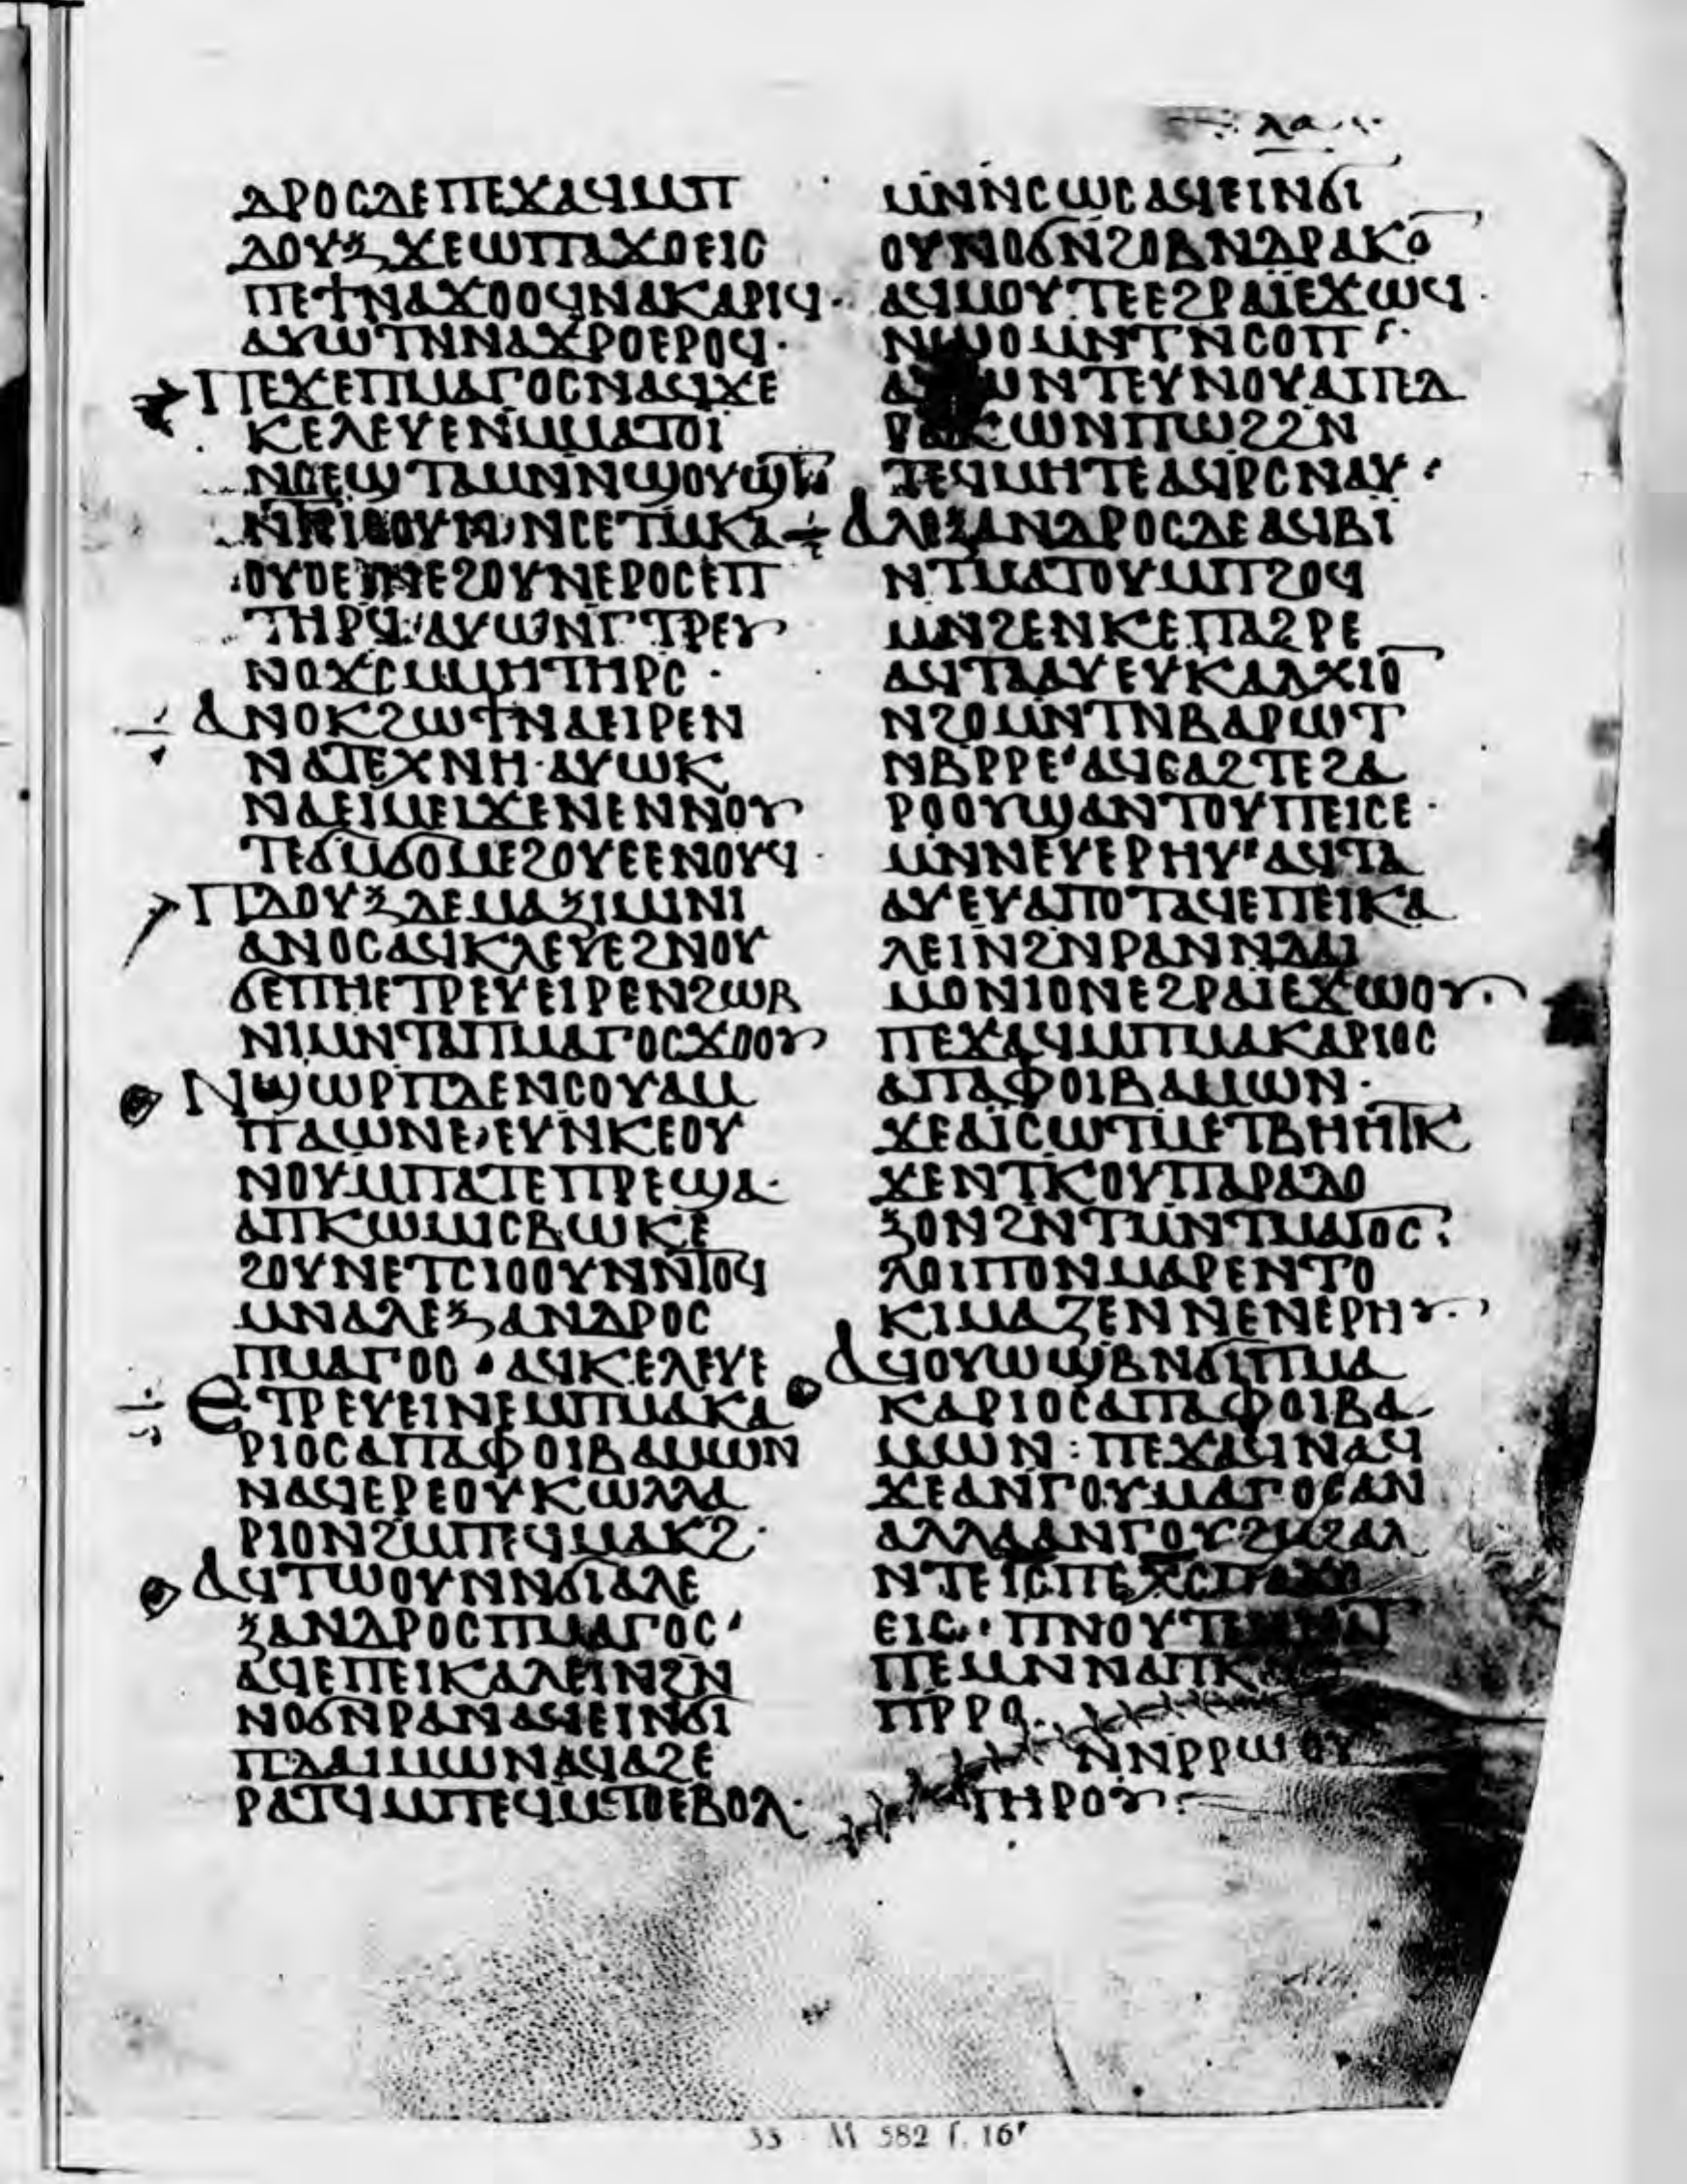 ⲗⲁ
ⲇⲣⲟⲥⲇⲉⲡⲉϫⲁϥⲙⲡ
ⲇⲟⲩⲝϫⲉⲱⲡⲁϫⲟⲉⲓⲥ
ⲡⲉϯⲛⲁϫⲟⲟϥⲛⲁⲕⲁⲣⲓϥ·
ⲁⲩⲱⲧⲛⲛⲁϫⲣⲟⲉⲣⲟϥ·
ⲡⲉϫⲉⲡⲙⲁⲅⲟⲥⲛⲁϥϫⲉ
ⲕⲉⲗⲉⲩⲉⲛⲙⲙⲁⲧⲟⲓ
ⲛⲥⲉϣⲧⲁⲙⲛⲛϣⲟⲩϣⲧ
ⲛⲥⲉⲧⲙⲕⲁ
ⲟⲩⲟⲉⲓⲛⲉϩⲟⲩⲛⲉⲣⲟⲥⲉⲡ
ⲧⲏⲣϥ·ⲁⲩⲱⲛⲅⲧⲣⲉⲩ
ⲛⲟϫⲥⲙⲙⲏⲧⲏⲣⲥ·
ⲁⲛⲟⲕϩⲱϯⲛⲁⲉⲓⲣⲉⲛ
ⲛⲁⲧⲉⲭⲛⲏ·ⲁⲩⲱⲕ
ⲛⲁⲉⲓⲙⲉⲓϫⲉⲛⲉⲛⲛⲟⲩ
ⲧⲉϭⲙϭⲟⲙⲉϩⲟⲩⲉⲉⲛⲟⲩϥ·
ⲡⲇⲟⲩⲝⲇⲉⲙⲁⲝⲓⲙⲓⲛⲓ
ⲁⲛⲟⲥⲁϥⲕⲗⲉⲩⲉϩⲛⲟⲩ
ϭⲉⲡⲏⲉⲧⲣⲉⲩⲉⲓⲣⲉⲛϩⲱⲃ
ⲛⲓⲙⲛⲧⲁⲡⲙⲁⲅⲟⲥϫⲟⲟⲩ
ⲛϣⲱⲣⲡⲇⲉⲛⲥⲟⲩⲁⲙ
ⲡⲁϣⲱⲛⲉ·ⲉⲩⲛⲕⲉⲟⲩ
ⲛⲟⲩⲙⲡⲁⲧⲉⲡⲣⲉϣⲁ·
ⲁⲡⲕⲱⲙⲓⲥⲃⲱⲕⲉ
ϩⲟⲩⲛⲉⲧⲥⲓⲟⲟⲩⲛⲛⲧⲟϥ
ⲙⲛⲁⲗⲉⲝⲁⲛⲇⲣⲟⲥ
ⲡⲙⲁⲅⲟⲥ·ⲁϥⲕⲉⲗⲉⲩⲉ
ⲉⲧⲣⲉⲩⲉⲓⲛⲉⲙⲡⲙⲁⲕⲁ
ⲣⲓⲟⲥⲁⲡⲁⲫⲟⲓⲃⲁⲙⲙⲱⲛ
ⲛⲁϥⲉⲣⲉⲟⲩⲕⲱⲗⲗⲁ
ⲣⲓⲟⲛϩⲙⲡⲉϥⲙⲁⲕϩ·
ⲁϥⲧⲱⲟⲩⲛⲛϭⲓⲁⲗⲉ
ⲝⲁⲛⲇⲣⲟⲥⲡⲙⲁⲅⲟⲥ·
ⲁϥⲉⲡⲉⲓⲕⲁⲗⲉⲓⲛϩⲛ
ⲛⲟϭⲛⲣⲁⲛⲁϥⲉⲓⲛϭⲓ
ⲡⲇⲁⲓⲙⲱⲛⲁϥⲁϩⲉ
ⲣⲁⲧϥⲙⲡⲉϥⲙⲧⲟⲉⲃⲟⲗ·
ⲙⲛⲛⲥⲱⲥⲁϥⲉⲓⲛϭⲓ
ⲟⲩⲛⲟϭⲛϩⲟⲃⲛⲇⲣⲁⲕⲟ
ⲁϥⲙⲟⲩⲧⲉⲉϩⲣⲁⲓⲉϫⲱϥ·
ⲛϣⲟⲙⲛⲧⲛⲥⲟⲡ
ⲛⲧⲉⲩⲛⲟⲩⲁⲡⲇ
ⲣⲁⲕⲱⲛⲡⲱϩϩⲛ
ⲧⲉϥⲙⲏⲧⲉⲁϥⲣⲥⲛⲁⲩ·
ⲁⲗⲉⲝⲁⲛⲇⲣⲟⲥⲇⲉⲁϥⲃⲓ
ⲛⲧⲙⲁⲧⲟⲩⲙⲡϩⲟϥ
ⲙⲛϩⲉⲛⲕⲉⲡⲁϩⲣⲉ
ⲁϥⲧⲁⲁⲩⲉⲩⲕⲁⲗⲭⲓⲟ
ⲛϩⲟⲙⲛⲧⲛⲃⲁⲣⲱⲧ
ⲛⲃⲣⲣⲉ·ⲁϥⲥⲁϩⲧⲉϩⲁ
ⲣⲟⲟⲩϣⲁⲛⲧⲟⲩⲡⲉⲓⲥⲉ·
ⲙⲛⲛⲉⲩⲉⲣⲏⲩ·ⲁϥⲧⲁ
ⲁⲩⲉⲩⲁⲡⲟⲧⲁϥⲉⲡⲉⲓⲕⲁ
ⲗⲉⲓⲛϩⲛⲣⲁⲛⲛⲇⲁⲓ
ⲙⲟⲛⲓⲟⲛⲉϩⲣⲁⲓⲉϫⲱⲟⲩ·
ⲡⲉϫⲁϥⲙⲡⲙⲁⲕⲁⲣⲓⲟⲥ
ⲁⲡⲁⲫⲟⲓⲃⲁⲙⲱⲛ·
ϫⲉⲁⲓⲥⲱⲧⲙⲉⲧⲃⲏⲏⲧⲕ
ϫⲉⲛⲧⲕⲟⲩⲡⲁⲣⲁⲇⲟ
ⲝⲟⲛϩⲛⲧⲙⲛⲧⲙⲁⲅⲟⲥ:
ⲗⲟⲓⲡⲟⲛⲙⲁⲣⲉⲛⲧⲟ
ⲕⲓⲙⲁⲍⲉⲛⲛⲉⲛⲉⲣⲏⲩ·
ⲁϥⲟⲩⲱϣⲃⲛϭⲓⲡⲙⲁ
ⲕⲁⲣⲓⲟⲥⲁⲡⲁⲫⲟⲓⲃⲁ
ⲙⲱⲛ:ⲡⲉϫⲁϥⲛⲁϥ
ϫⲉⲁⲛⲅⲟⲩⲙⲁⲅⲟⲥⲁⲛ
ⲁⲗⲗⲁⲁⲛⲅⲟⲩϩⲙϩⲁⲗ
ⲛⲧⲉⲓⲥⲡⲉⲭⲥⲡⲁϫⲟ
ⲉⲓⲥ·ⲡⲛⲟⲩⲧⲉ
ⲡⲉⲙⲛⲛⲁⲡⲕⲁϩ
ⲡⲣⲣⲟ
ⲛⲛⲣⲣⲱⲟⲩ
ⲧⲏⲣⲟⲩ:
33 · M 582 f. 16ʳ